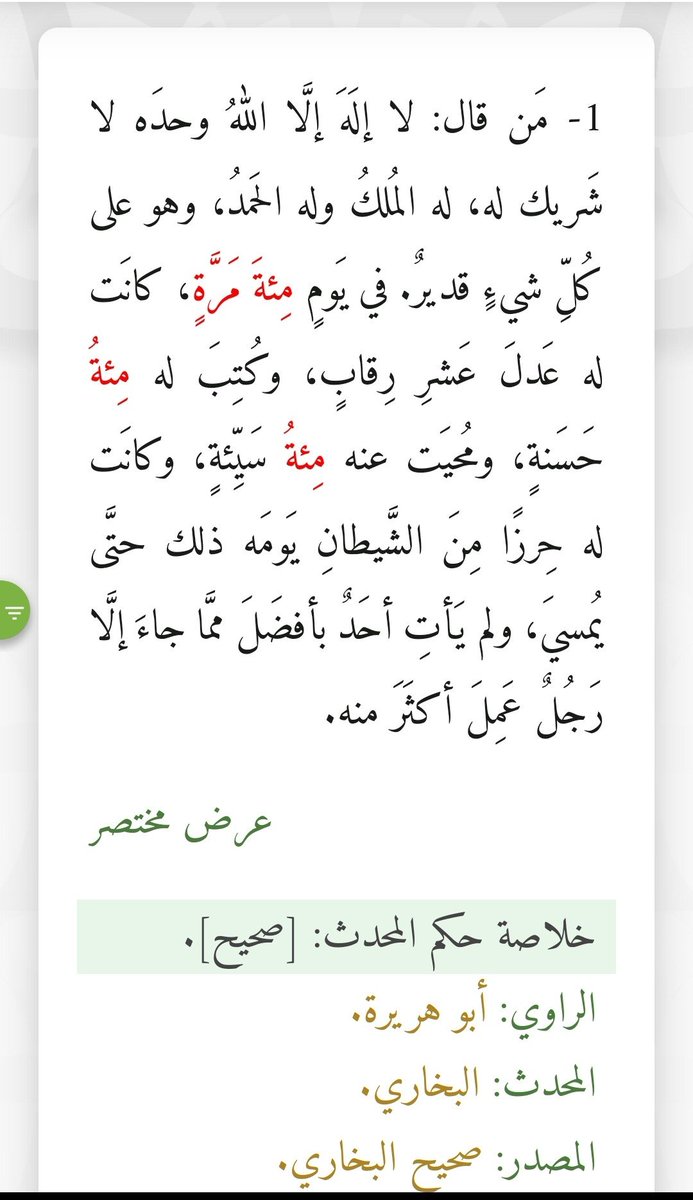 1- مَن قال: لا إلَهَ إلَّا اللهُ وحدَه لا
شَريك له، له المُلكُ وله الحَمدُ، وهو على
كُلِّ شيءٍ قديرٌ. في يَومٍ مِئةَ مَرَّةٍ، كانَت
له عَدلَ عَشرِ رِقابٍ، وكُتِبَ له مِئةُ
حَسَنةٍ، ومُحيَت عنه مِئةُ سَيِّئةٍ، وكانَت
له حِرزًا مِنَ الشَّيطانِ يَومَه ذلك حتَّى
يُمسيَ، ولم يَأتِ أحَدٌ بأفضَلَ ممَّا جاءَ إلَّا
رَجُلٌ عَمِلَ أكثَرَ منه.
عرض مختصر
خلاصة حكم المحدث: [صحيح].
الراوي: أبو هريرة.
المحدث: البخاري.
المصدر: صحيح البخاري.